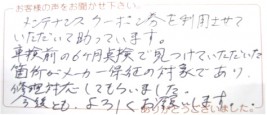 お客様の声をお聞かせ下さい。
メンテナンスクーポン券を利用させて
いただいて助っています。
車検前の6ヶ月点検で見つけていただいた
箇所がメーカー保証の対象であり、
修理対応してもらいました。
今後とも、よろしくお願いします。
ありがとうございました。